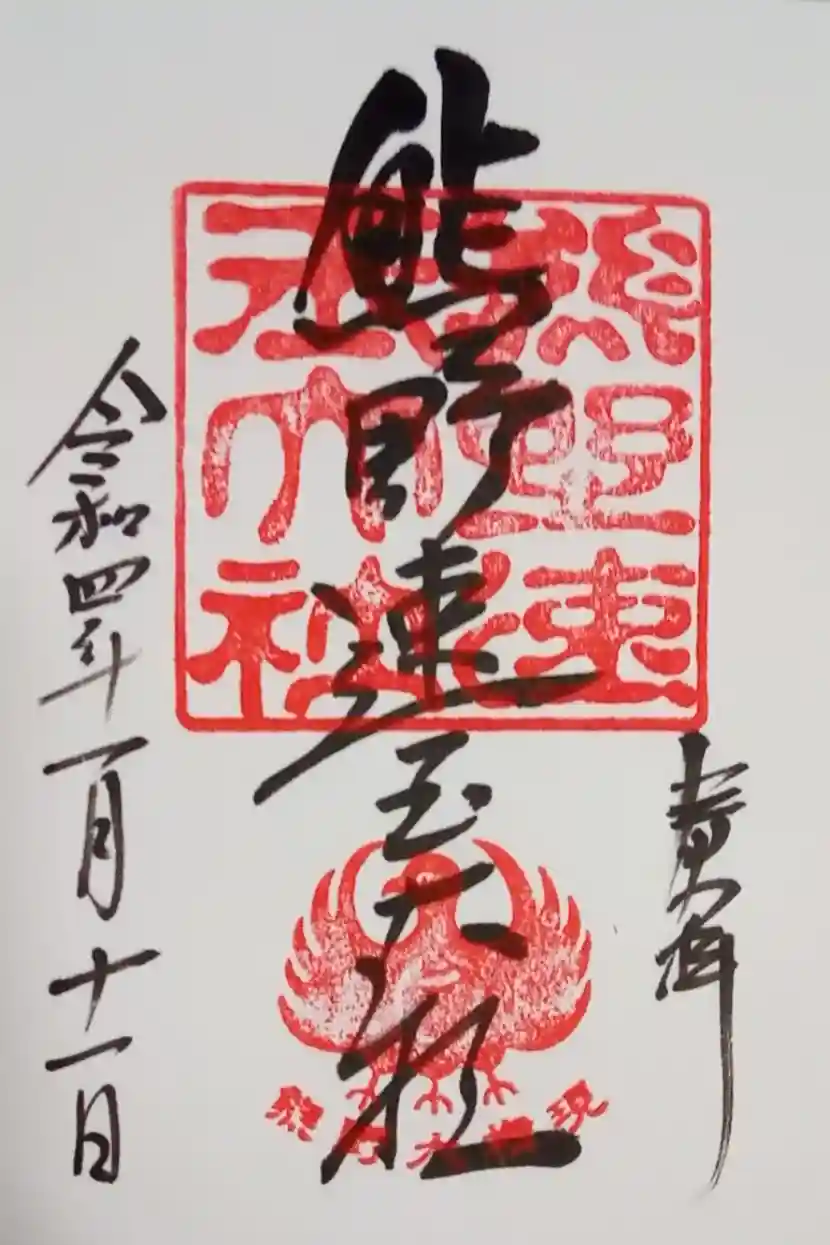 奉拝
熊野速玉大社
熊野速玉大社
熊野大権現
令和四年一月十一日